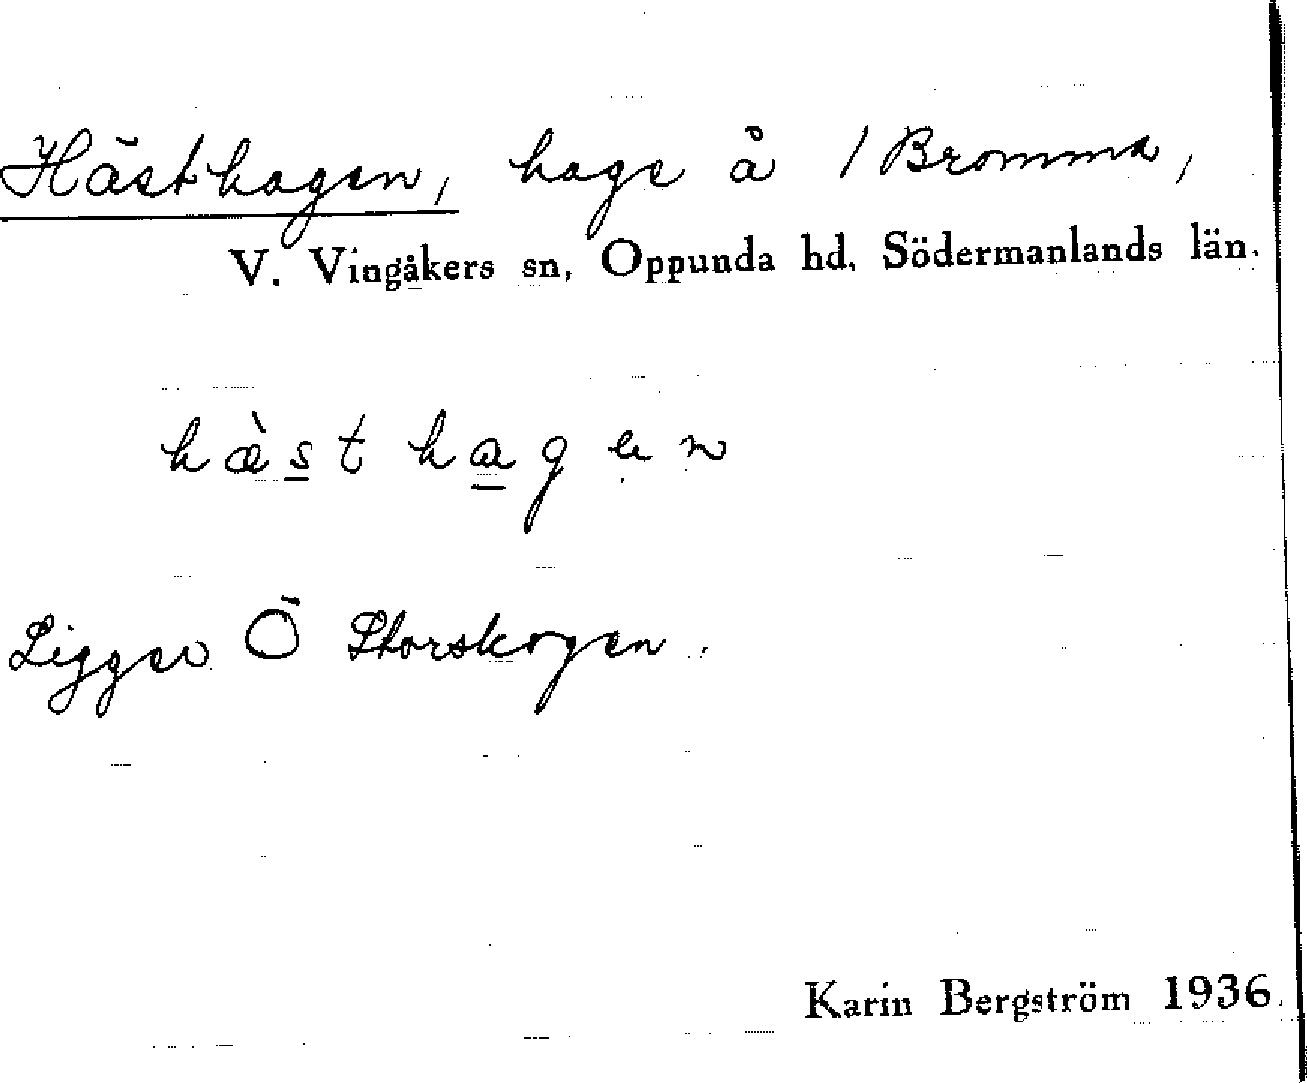 Hästhagen, hage å 1 Bromma,
V. Vingåkers sn, Oppunda hd, Södermanlands län.
hæ̀s̲t ha̲gẹn
Ligger Ö Storskogen.
Karin Bergström 1936.